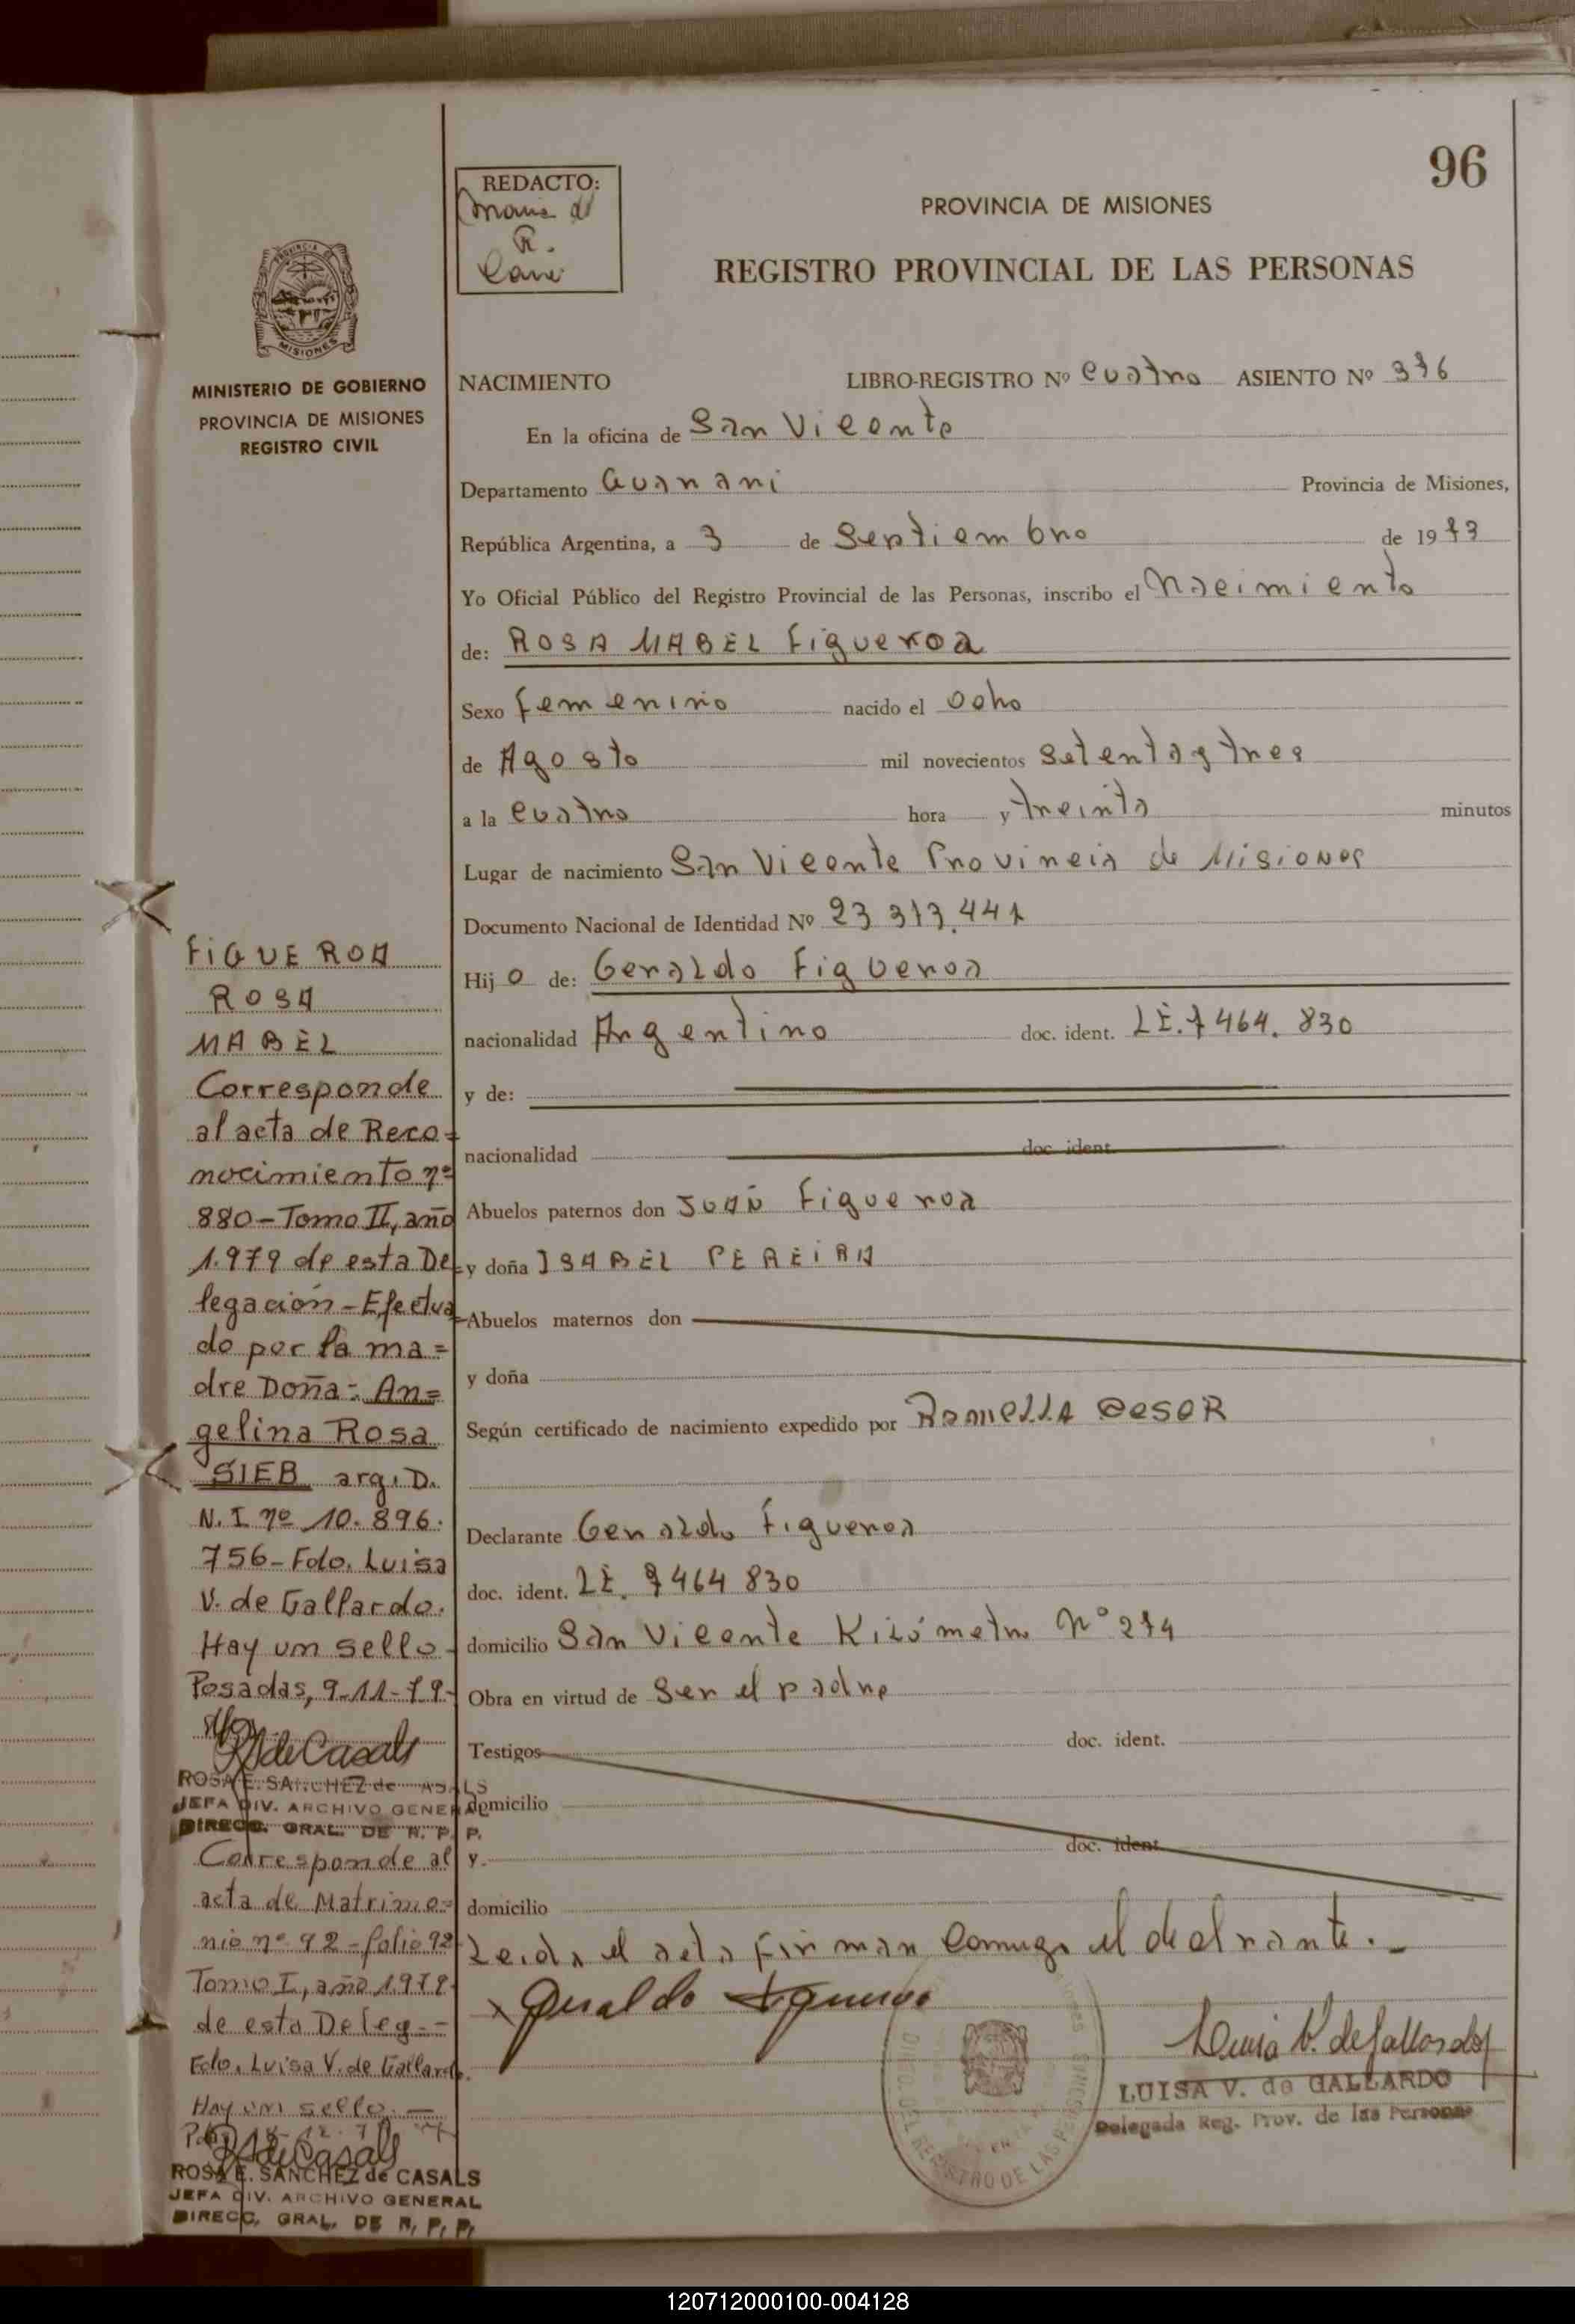 96
REDACTO:
PROVINCIA DE MISIONES
REGISTRO PROVINCIAL DE LAS PERSONAS
PROVINCIA DE
MISIONES
MINISTERIO DE GOBIERNO
PROVINCIA DE MISIONES
REGISTRO CIVIL
NACIMIENTO LIBRO-REGISTRO Nº Cuatro ASIENTO Nº 376
En la oficina de San Vicente
Departamento Guarani Provincia de Misiones,
República Argentina, a 3 de Septiembre de 1973
Yo Oficial Público del Registro Provincial de las Personas, inscribo el Nacimiento
de: ROSA MABEL Figueroa
Sexo femenino nacido el Ocho
de Agosto mil novecientos Setenta y tres
a la Cuatro hora y treinta minutos
Lugar de nacimiento San Vicente Provincia de Misiones
Documento Nacional de Identidad Nº 23 313.441
Hij o de: Geraldo Figueroa
nacionalidad Argentino doc. ident. LE. 7 464. 830
y de:
nacionalidad doc. ident.
Abuelos paternos don JUAN Figueroa
y doña ISABEL PEREIRA
Abuelos maternos don
y doña
Según certificado de nacimiento expedido por
Declarante Geraldo Figueroa
doc. ident. LE. 7 464 830
domicilio San Vicente Kilómetro Nº 274
Obra en virtud de Ser el padre
Testigos doc. ident.
domicilio
y doc. ident.
domicilio
Leida el acta firman Conmigo el declarante.-
x Geraldo Figueroa
Luisa V. de Gallardo
LUISA V. de GALLARDO
Delegada Reg. Prov. de las Personas
REGISTRO DE LAS PERSONAS
FIGUEROA
ROSA
MABEL
Corresponde
al acta de Reco=
nocimiento nº
880-Tomo II, año
1.979 de esta De=
legación-Efectua=
do por la ma=
dre Doña: An=
gelina Rosa
SIEB arg. D.
N.I nº 10.896.
756-Fdo. Luisa
V. de Gallardo.
Hay un sello-
Posadas, 9-11-79-
RSdeCasals
ROSA E. SANCHEZ de CASALS
JEFA DIV. ARCHIVO GENERAL
DIRECC. GRAL. DE R. P. P.
Corresponde al
acta de Matrimo=
nio nº 92-folio 92
Tomo I, año 1979
de esta Deleg.-
Fdo. Luisa V. de Gallardo.
Hay un sello.-
RSdeCasals
ROSA E. SANCHEZ de CASALS
JEFA DIV. ARCHIVO GENERAL
DIRECC. GRAL. DE R. P. P.
120712000100-004128